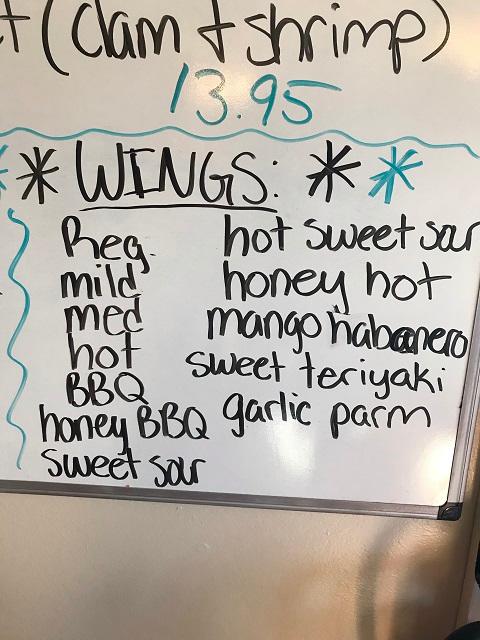 (clam + shrimp)
13.95
* WINGS: * *
Reg.
mild
med
hot
BBQ
honey BBQ
sweet sour
hot sweet sour
honey hot
mango habanero
sweet teriyaki
garlic parm